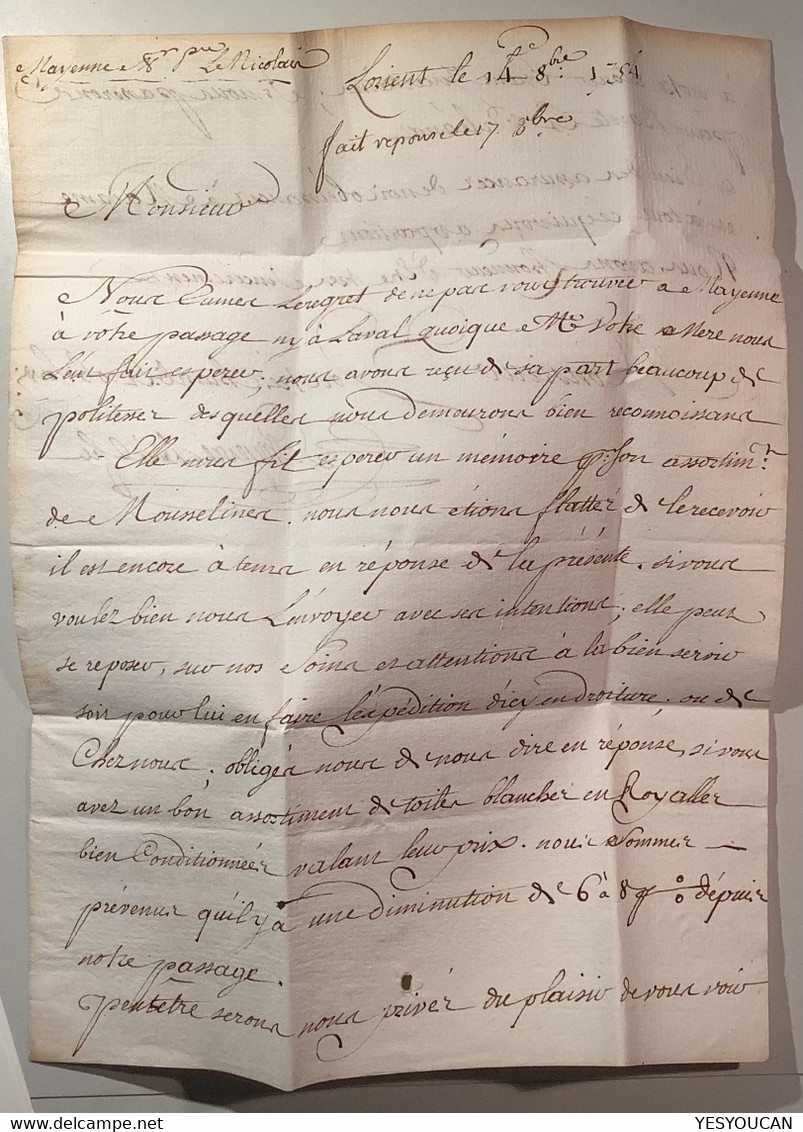 Mayenne Mr pre Le Nicolais
Lorient le 14e 8bre 1754
fait reponse le 17 8bre
Monsieur
Nous Eumes Le regret de ne pas vous trouver a Mayenne
à vôtre passage ny à Laval quoique Me Votre Mere nous
L'eut fait esperer, nous avons reçu de sa part beaucoup de
politesses desquelles nous demeurons bien reconnoissans
Elle nous fit esperer un mémoire pr. son assortimt.
de Mousselines. nous nous étions flattés de le recevoir
il est encore à tems en réponse de la présente. si vous
voulez bien nous L'envoyer avec ses intentions, elle peut
se reposer, sur nos Soins et attentions à la bien servir
soit pour lui en faire l'éxpédition d'icy en droiture. ou de
Chez nous; obligés nous de nous dire en réponse, si vous
avez un bon assortiment de toiles blanches en Royalles
bien Conditionnées valant leur prix. nous Sommes
prévenus qu'il y à une diminution de 6 à 8 p o/o dépuis
notre passage.
peutetre serons nous privés du plaisir de vous voir
YESYOUCAN